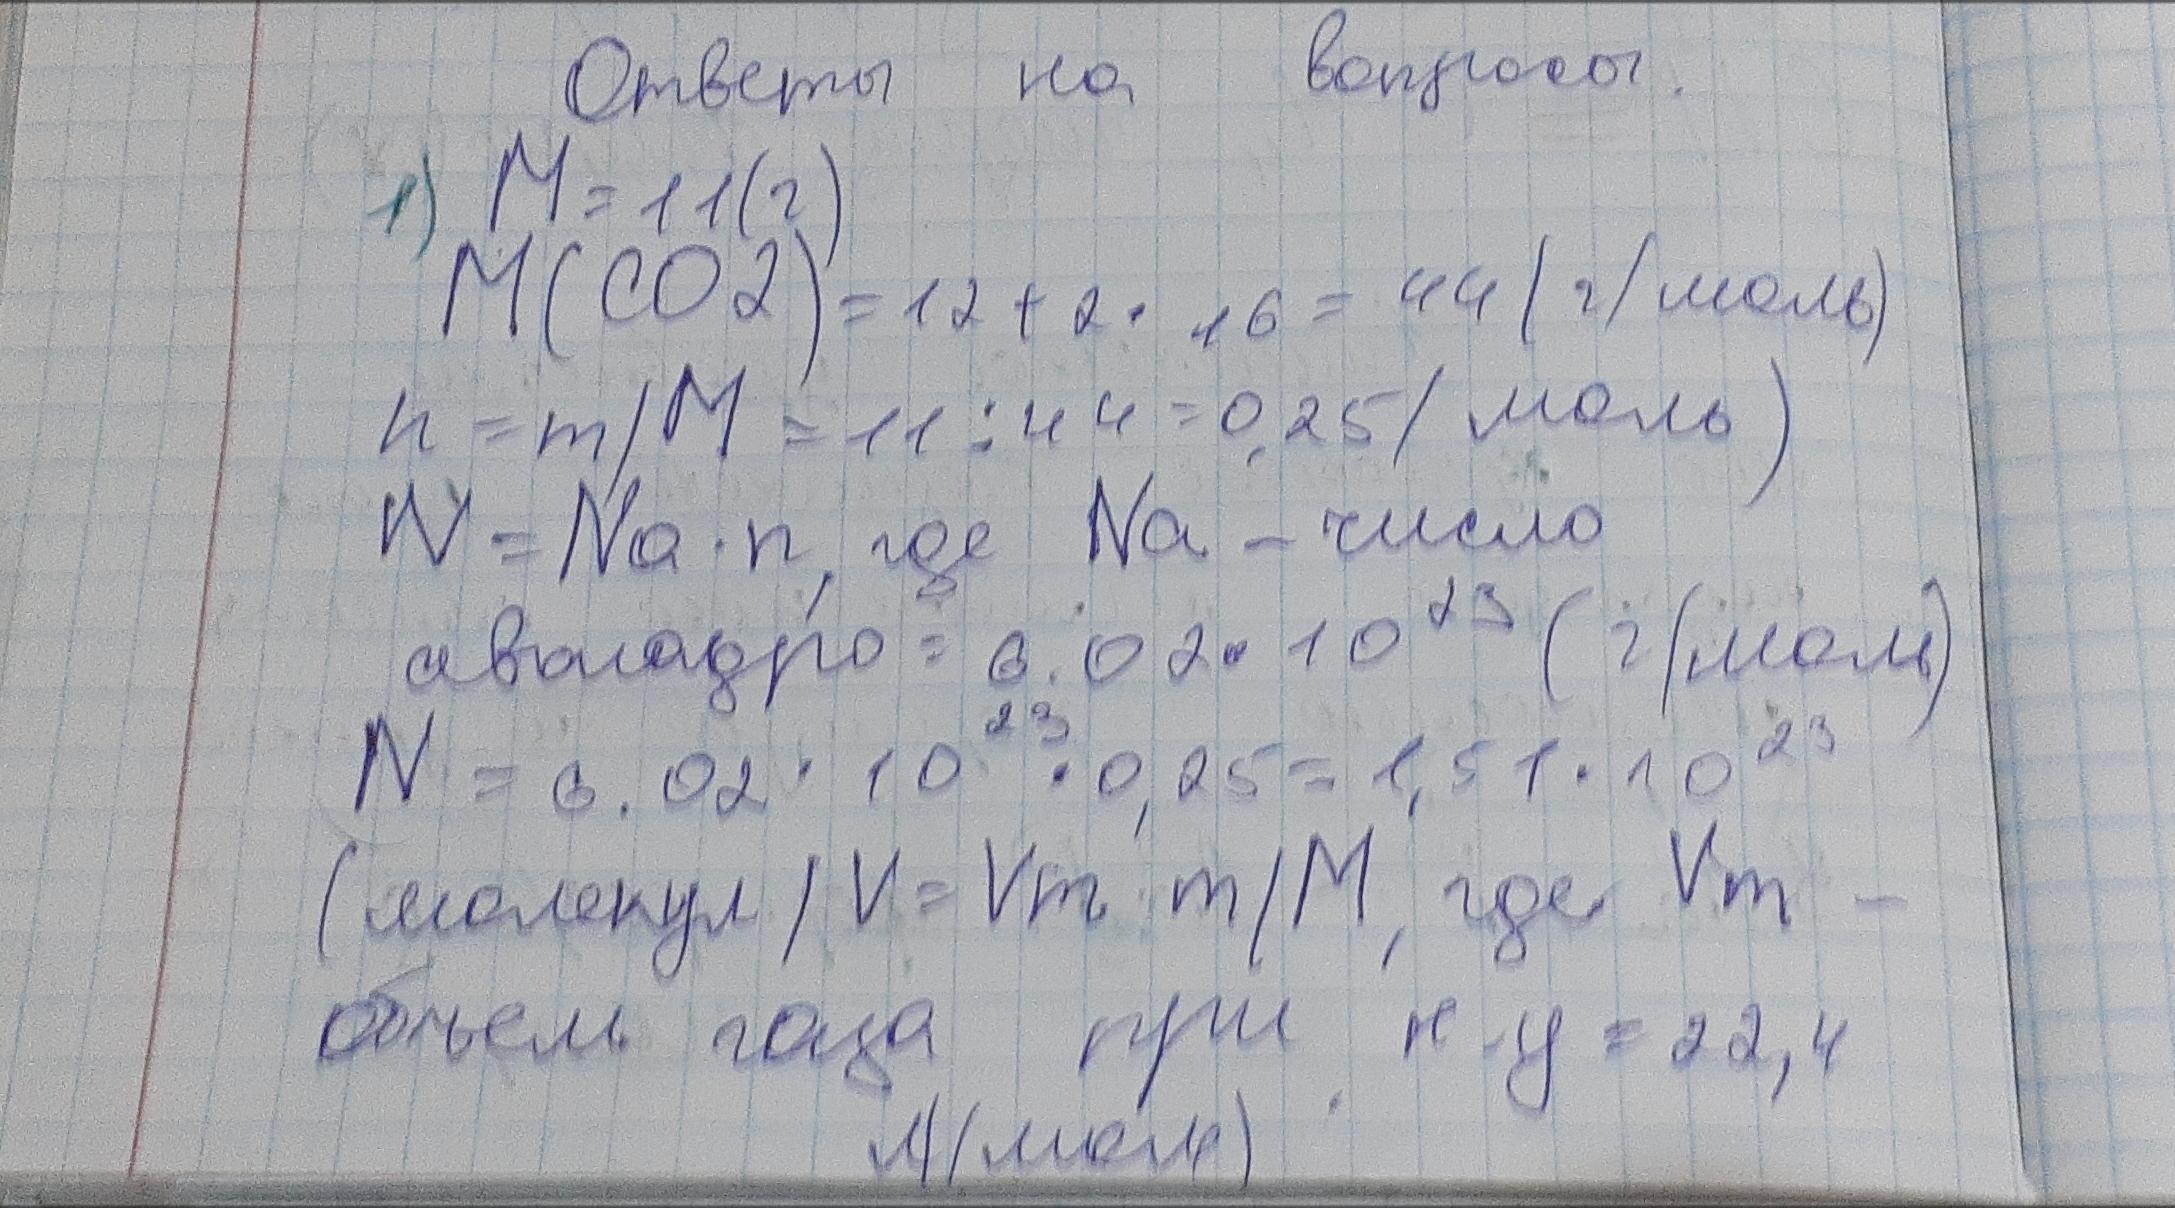 Ответы на вопросы.
1) M = 11(г)
M(CO2) = 12 + 2 · 16 = 44 (г/моль)
n = m/M = 11 : 44 = 0,25 / моль)
N = Na · n, где Na – число
авогадро = 6.02 · 10²³ (г/моль)
N = 6.02 · 10²³ · 0,25 = 1,51 · 10²³
(молекул / V = Vm m/M, где Vm –
объем газа при н.у = 22,4
л/(моль)